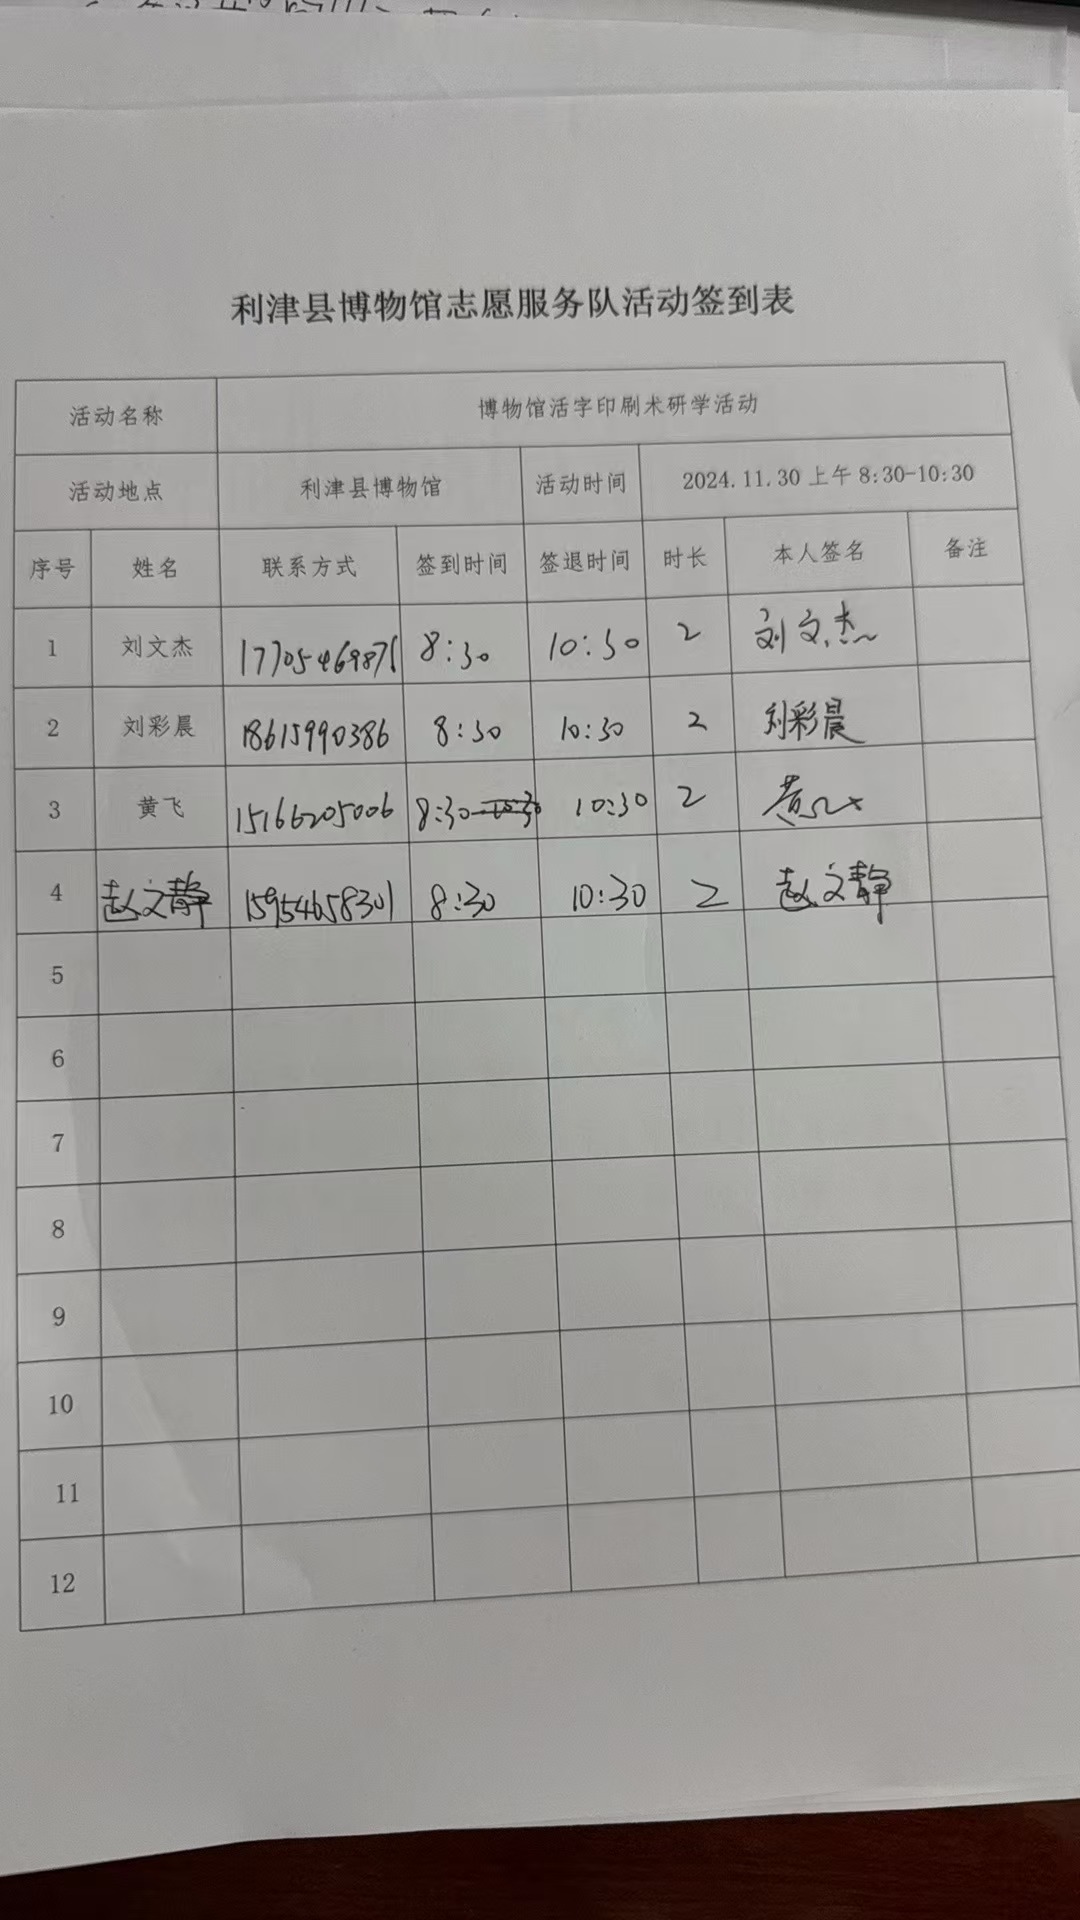 利津县博物馆志愿服务队活动签到表
活动名称 博物馆活字印刷术研学活动
活动地点 利津县博物馆 活动时间 2024.11.30 上午 8:30-10:30
序号 姓名 联系方式 签到时间 签退时间 时长 本人签名 备注
1 刘文杰 8:30 10:30 2 刘文杰
2 刘彩晨 18615990386 8:30 10:30 2 刘彩晨
3 黄飞 15166205006 8:30 10:30 2 黄飞
4 赵文静 15954658301 8:30 10:30 2 赵文静
5
6
7
8
9
10
11
12